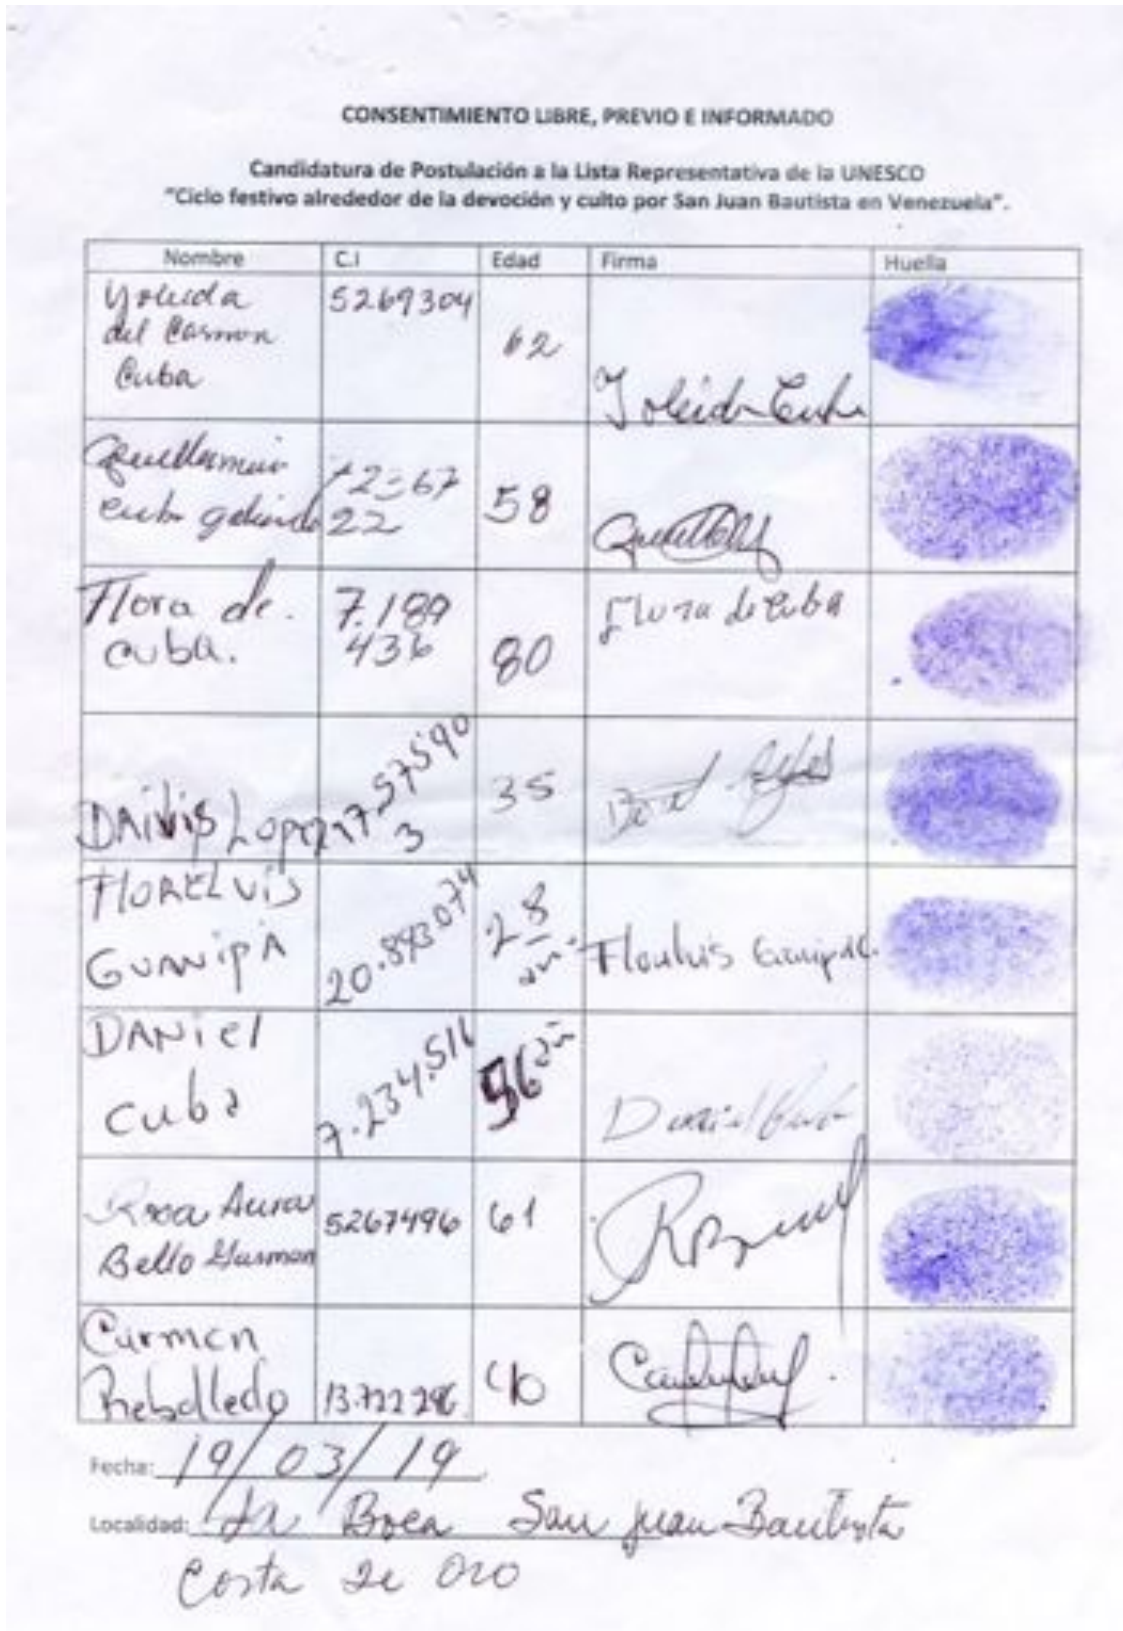 CONSENTIMIENTO LIBRE, PREVIO E INFORMADO
Candidatura de Postulación a la Lista Representativa de la UNESCO
"Ciclo festivo alrededor de la devoción y culto por San Juan Bautista en Venezuela".
Nombre C.I Edad Firma Huella
Yoleida del Carmen Cuba 5269304 62 Yoleida Cuba
58
Flora de. Cuba. 7.189 436 80 Flora de Cuba
DAiVis Lopez 17.575903 35
FlORELVIS GUANIPA 20.893.074 28 Florelvis Guanipa.
DANiel Cuba 7.234.516 56 Daniel Cuba
Rosa Aura Bello Gusman 5267496 61
Carmen Rebolledo 13.722 296 40
Fecha: 19/03/19
Localidad: La Boca San Juan Bautista
Costa de Oro